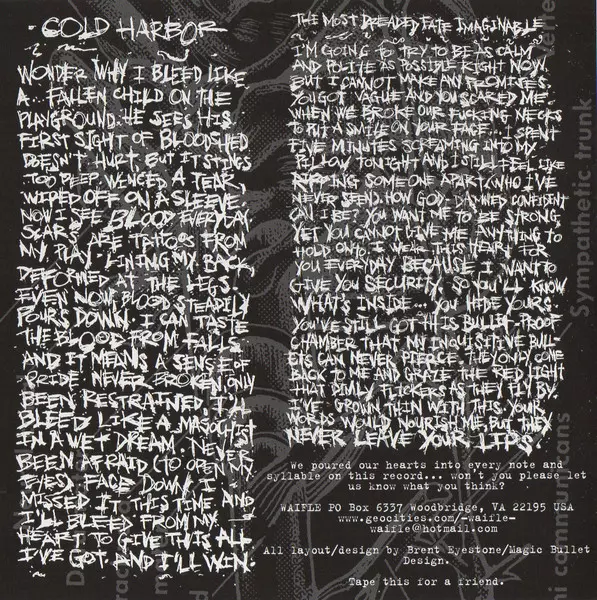 COLD HARBOR
WONDER WHY I BLEED LIKE
A FALLEN CHILD ON THE
PLAYGROUND. HE SEES HIS
FIRST SIGHT OF BLOODSHED
DOESN'T HURT, BUT IT STINGS
TOO DEEP. WINCED A TEAR,
WIPED OFF ON A SLEEVE.
NOW I SEE BLOOD EVERYDAY.
SCARS ARE TATTOOS FROM
MY PLAY. PINING MY BACK,
DEFORMED AT THE LEGS.
EVEN NOW, BLOOD STEADILY
POURS DOWN. I CAN TASTE
THE BLOOD FROM FALLS
AND IT MEANS A SENSE OF
PRIDE. NEVER BROKEN, ONLY
BEEN RESTRAINED. I'LL
BLEED LIKE A MASOCHIST
IN A WET DREAM. NEVER
BEEN AFRAID (TO OPEN MY
EYES) FACE DOWN I
MISSED IT THIS TIME AND
I'LL BLEED FROM MY
HEART TO GIVE THIS ALL
I'VE GOT. AND I'LL WIN.
THE MOST DREADED FATE IMAGINABLE
I'M GOING TO TRY TO BE AS CALM
AND POLITE AS POSSIBLE RIGHT NOW.
BUT I CANNOT MAKE ANY PROMISES.
YOU GOT VAGUE AND YOU SCARED ME.
WHEN WE BROKE OUR FUCKING NECKS
TO PUT A SMILE ON YOUR FACE... I SPENT
FIVE MINUTES SCREAMING INTO MY
PILLOW TONIGHT AND I STILL FEEL LIKE
RIPPING SOMEONE APART WHO I'VE
NEVER SEEN. HOW GOD-DAMNED CONFIDENT
CAN I BE? YOU WANT ME TO BE STRONG,
YET YOU CANNOT GIVE ME ANYTHING TO
HOLD ONTO. I WEAR THIS HEART FOR
YOU EVERYDAY BECAUSE I WANT TO
GIVE YOU SECURITY, SO YOU'LL KNOW
WHAT'S INSIDE... YOU HIDE YOURS.
YOU'VE STILL GOT THIS BULLET-PROOF
CHAMBER THAT MY INQUISITIVE BULL-
ETS CAN NEVER PIERCE. THEY ONLY COME
BACK TO ME AND GRAZE THE RED LIGHT
THAT DIMLY FLICKERS AS THEY FLY BY.
I'VE GROWN THIN WITH THIS. YOUR
WORDS WOULD NOURISH ME, BUT THEY
NEVER LEAVE YOUR LIPS.
We poured our hearts into every note and
syllable on this record... won't you please let
us know what you think?
WAIFLE PO Box 6337 Woodbridge, VA 22195 USA
www.geocities.com/-waifle-
waifle@hotmail.com
All layout/design by Brent Eyestone/Magic Bullet
Design.
Tape this for a friend.
Sympathetic trunk